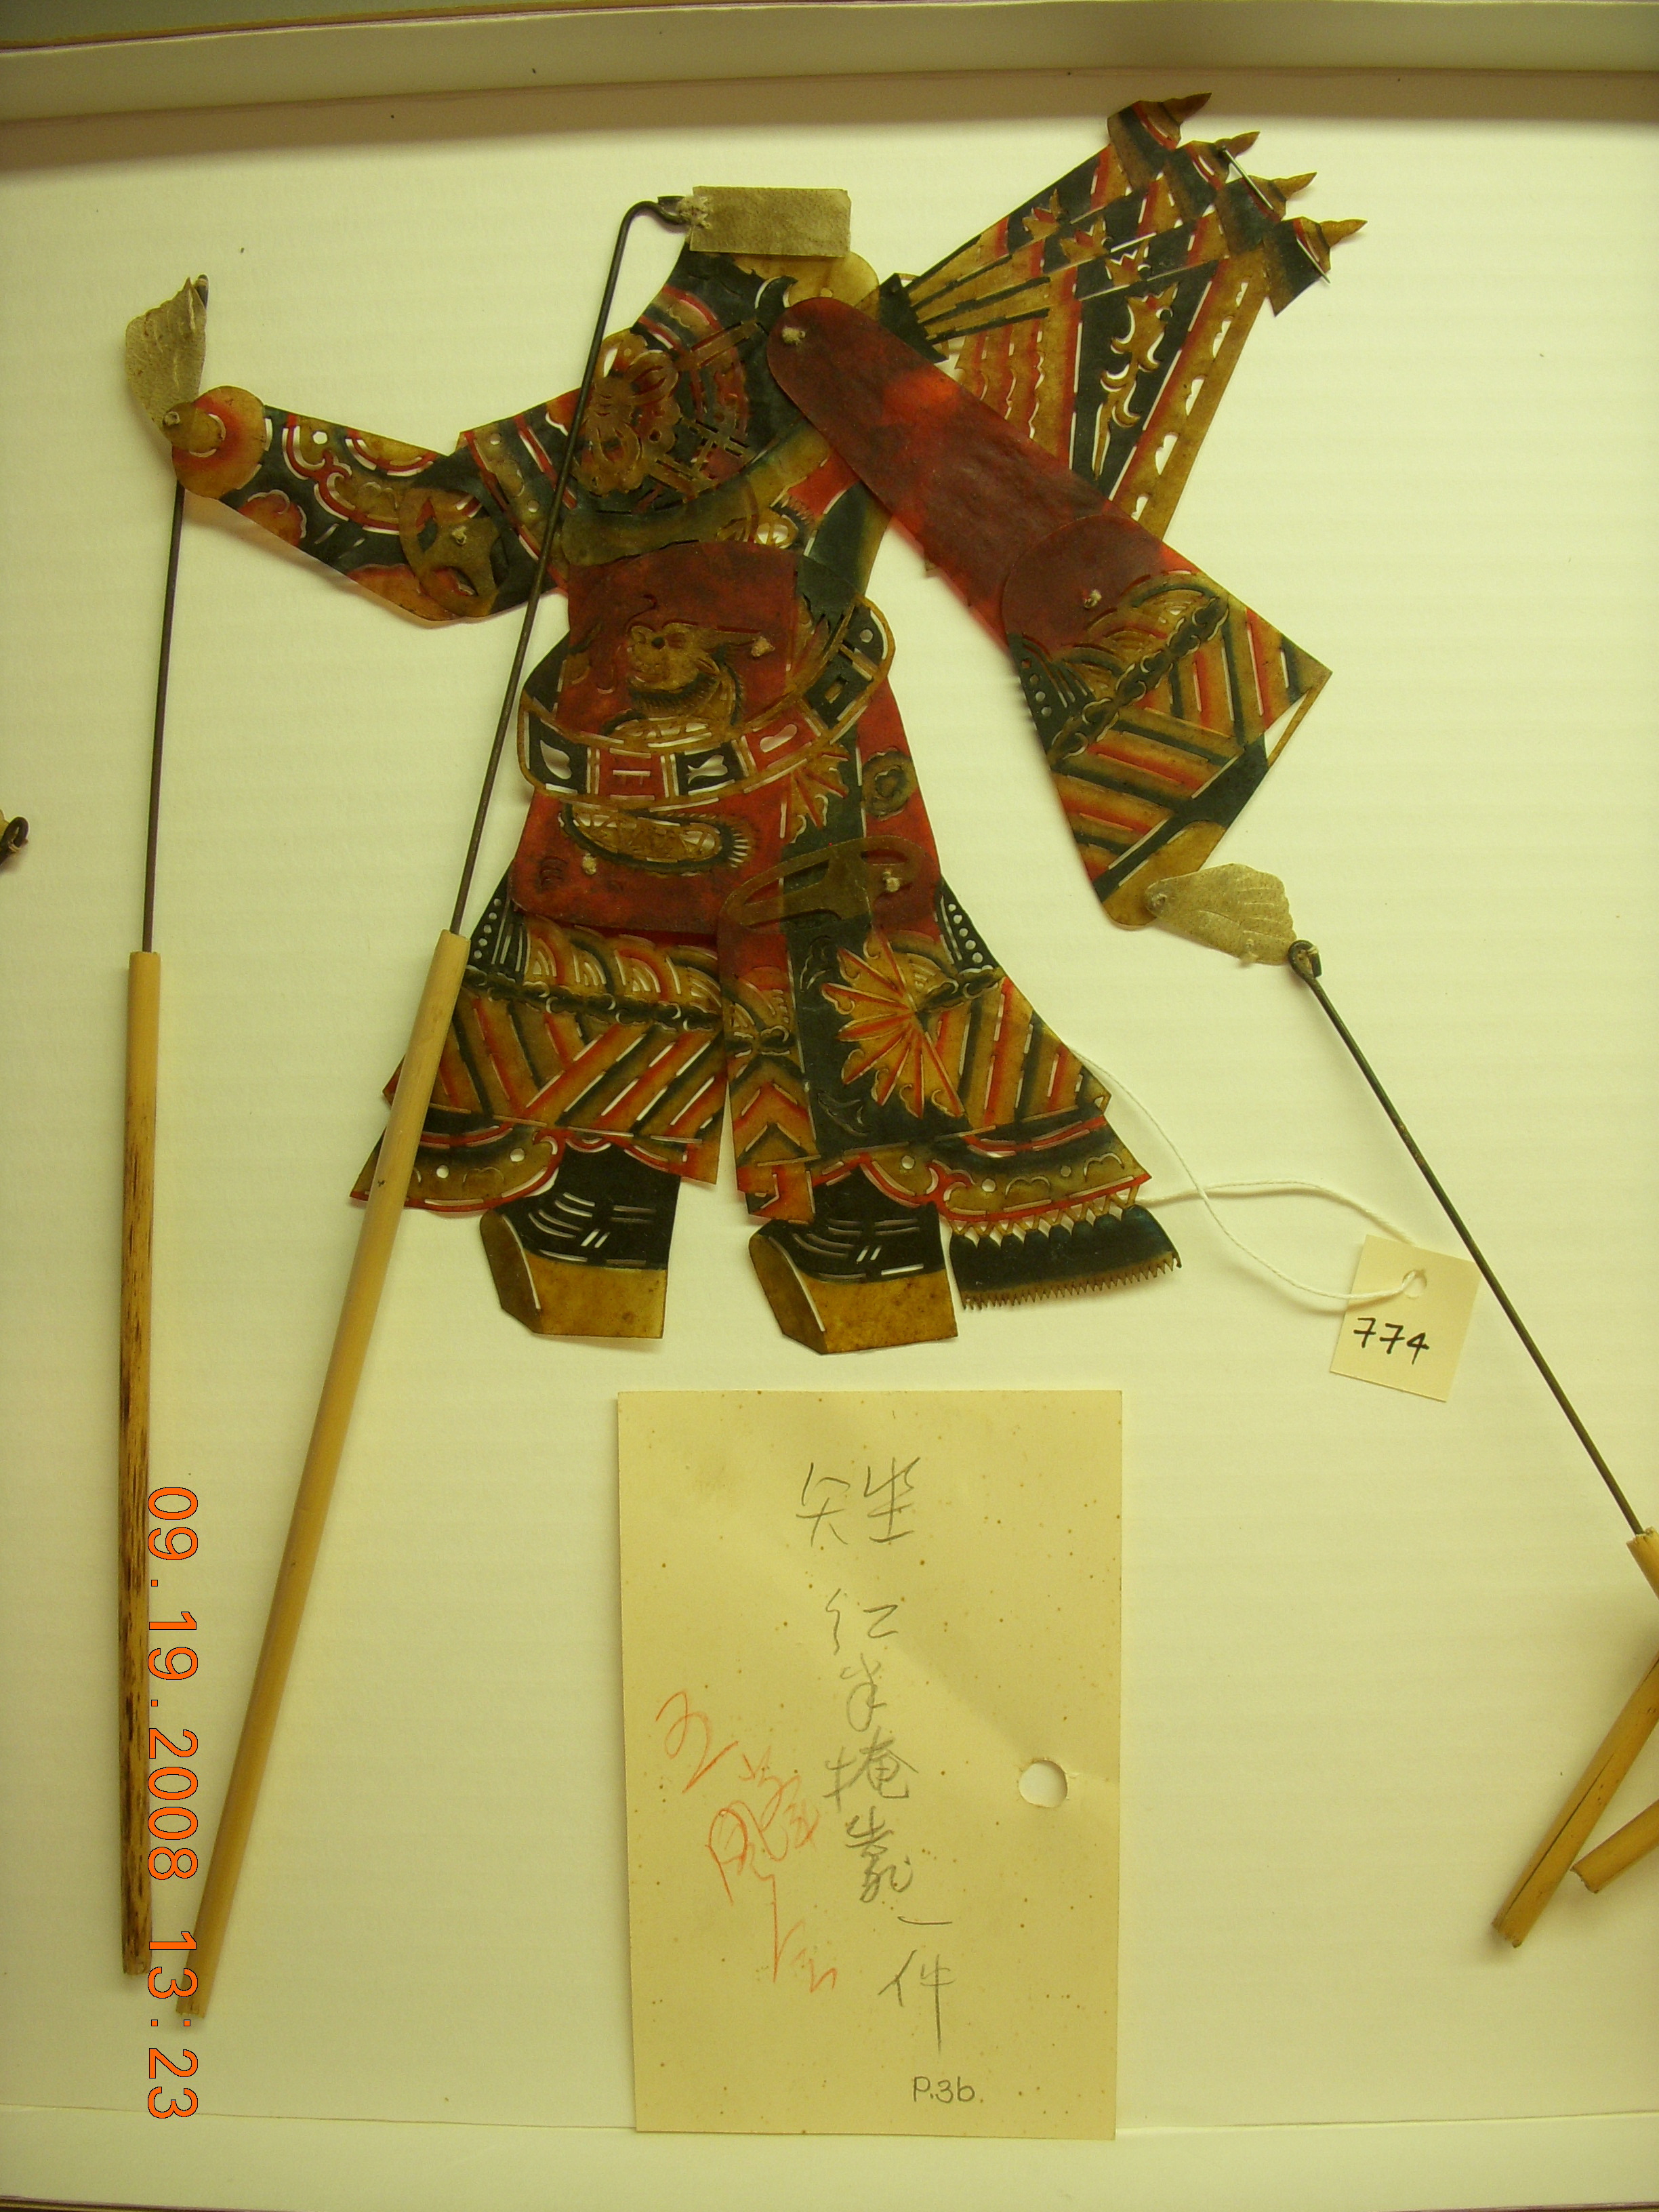 774
矬 红半掩靠一件
P.3b.
09.19.2008 13:23